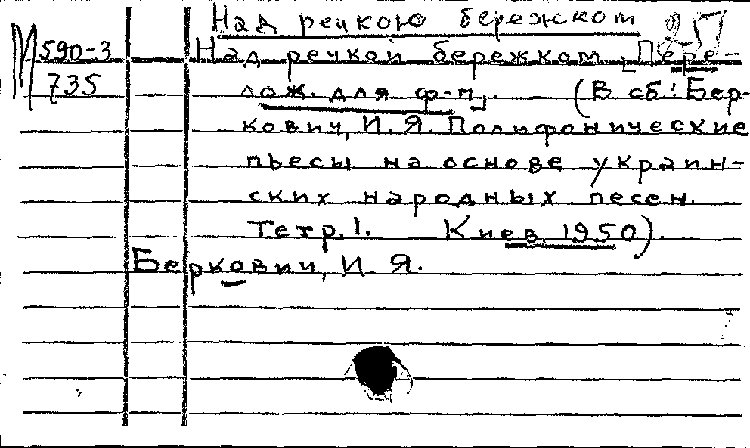 Над речкою бережком
М 590-3 Над речкой бережкам [Пере-
735 лож. для ф-п]. (В сб: Бер-
кович, И. Я. Полифонические
пьесы на основе украин-
ских народных песен.
Тетр. 1. Киев 1950).
Беркович, И. Я.